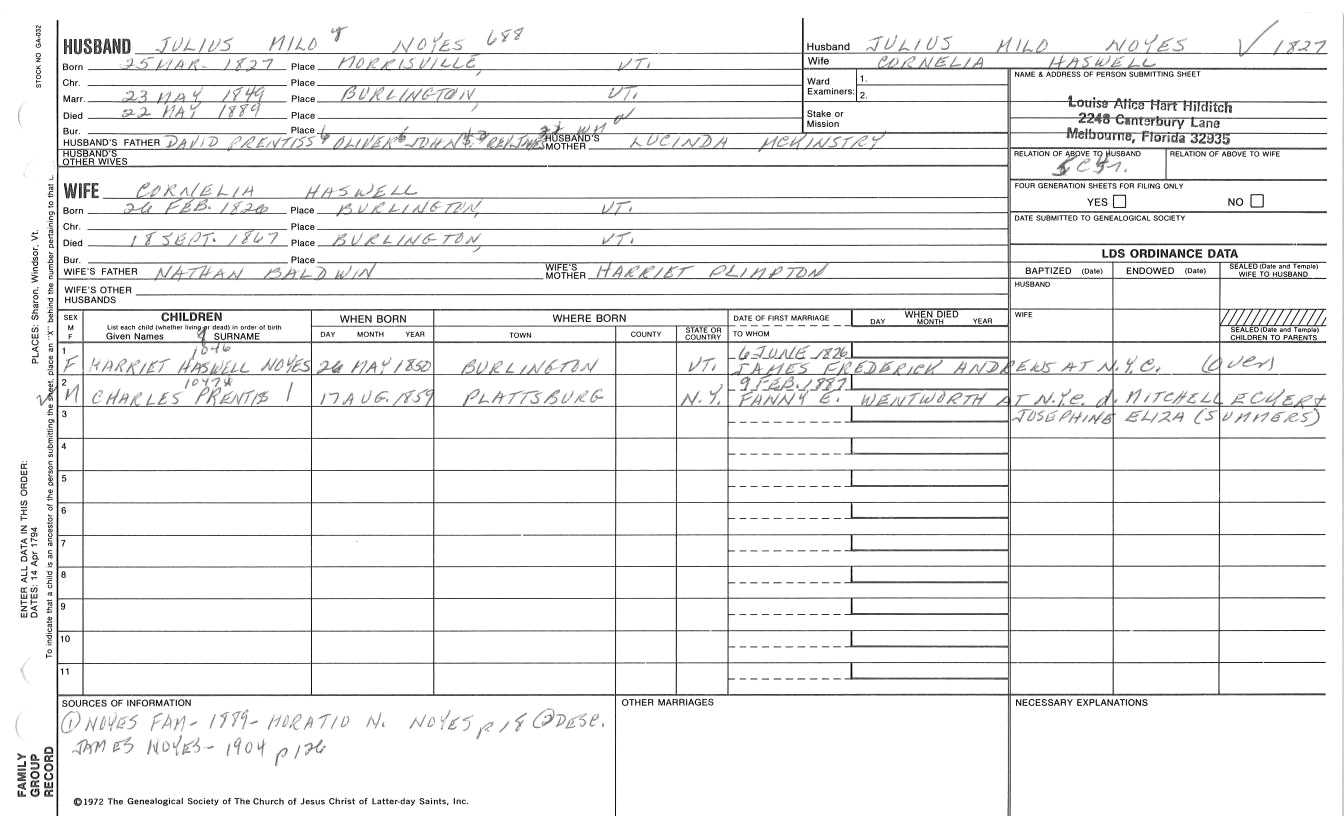 STOCK NO GA-032
HUSBAND JULIUS MILO 8 NOYES 688
Born 25 MAR- 1827 Place MORRISVILLE, VT.
Chr. Place
Marr. 23 MAY 1849 Place BURLINGTON, VT.
Died 22 MAY 1889 Place
Bur. Place
HUSBAND'S FATHER DAVID PRENTISS 6 OLIVER 6 JOHN HUSBAND'S MOTHER LUCINDA MCKINSTRY
HUSBAND'S OTHER WIVES
Husband JULIUS MILO NOYES √ 1827
Wife CORNELIA HASWELL
Ward Examiners: 1.
2.
Stake or Mission
NAME & ADDRESS OF PERSON SUBMITTING SHEET
Louise Alice Hart Hilditch
2248 Canterbury Lane
Melbourne, Florida 32935
RELATION OF ABOVE TO HUSBAND RELATION OF ABOVE TO WIFE
FOUR GENERATION SHEETS FOR FILING ONLY
YES NO
DATE SUBMITTED TO GENEALOGICAL SOCIETY
WIFE CORNELIA HASWELL
Born 26 FEB. 1826 Place BURLINGTON, VT.
Chr. Place
Died 18 SEPT. 1867 Place BURLINGTON, VT.
Bur. Place
WIFE'S FATHER NATHAN BALDWIN WIFE'S MOTHER HARRIET PLIMPTON
WIFE'S OTHER HUSBANDS
LDS ORDINANCE DATA
BAPTIZED (Date) ENDOWED (Date) SEALED (Date and Temple) WIFE TO HUSBAND
HUSBAND
WIFE
SEALED (Date and Temple) CHILDREN TO PARENTS
SEX M F
CHILDREN
List each child (whether living or dead) in order of birth
Given Names SURNAME
WHEN BORN
DAY MONTH YEAR
WHERE BORN
TOWN COUNTY STATE OR COUNTRY
DATE OF FIRST MARRIAGE
TO WHOM
WHEN DIED
DAY MONTH YEAR
1 1046 6 JUNE 1876
F HARRIET HASWELL NOYES 26 MAY 1850 BURLINGTON VT. JAMES FREDERICK ANDREWS AT N.Y.C. (OVER)
2 1047 9 FEB. 1887
M CHARLES PRENTIS 17 AUG. 1859 PLATTSBURG N.Y. FANNY E. WENTWORTH AT N.Y.C. d. MITCHELL ECKERT
3 JOSEPHINE ELIZA (SUMMERS)
4
5
6
7
8
9
10
11
SOURCES OF INFORMATION
① NOYES FAM- 1889- HORATIO N. NOYES p 18 ② DESC.
JAMES NOYES- 1904 p 126
©1972 The Genealogical Society of The Church of Jesus Christ of Latter-day Saints, Inc.
OTHER MARRIAGES
NECESSARY EXPLANATIONS
ENTER ALL DATA IN THIS ORDER:
DATES: 14 Apr 1794
PLACES: Sharon, Windsor, Vt.
To indicate that a child is an ancestor of the person submitting the sheet, place an "X" behind the number pertaining to that
FAMILY GROUP RECORD